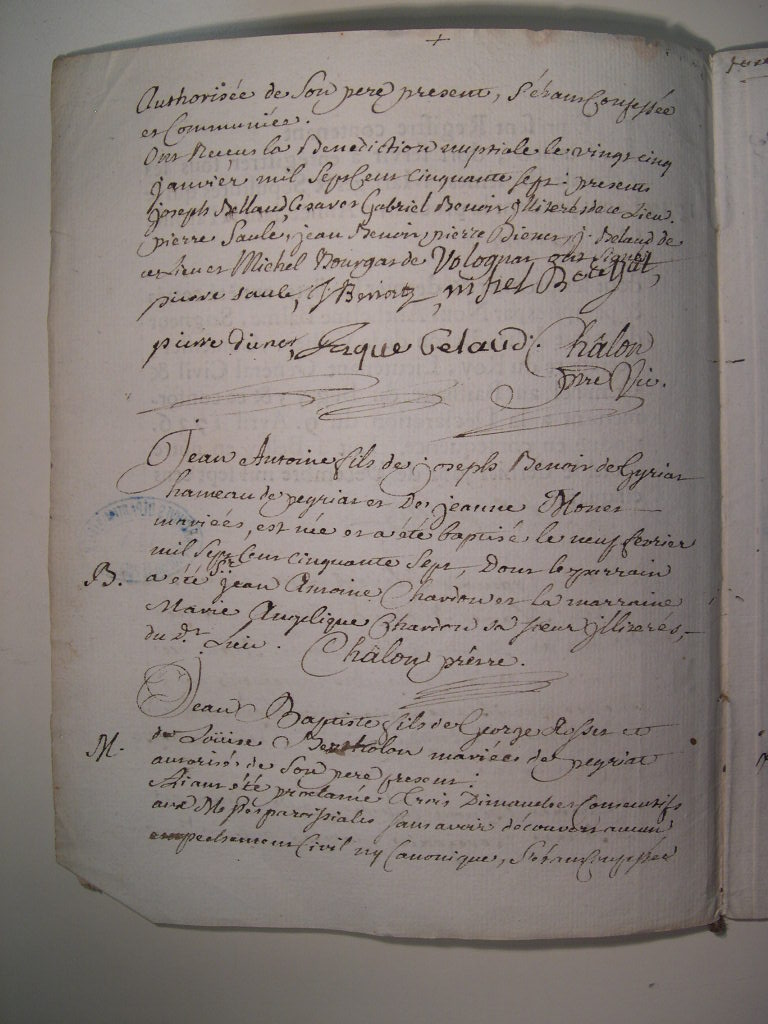 +
Authorisée de Son pere present, S'étant Confessée
et Communiée.
Ont Receus la Benediction nuptiale le vingt cinq
janvier mil Sept Cent cinquante sept: present
joseph Bellaud, Gabriel Benoit illiterés de ce Lieu.
pierre Saule, jean Benoit, pierre Dienet, j. Belaud de
ce Lieu et Michel Bourgat de Volognat qui signé
pierre saule, J Benoit, michel Bourgat,
pierre dienet, Jaque Belaud. Châlon
ptre Vic.
Jean Antoine fils de joseph Benoit de
hameau de peyriat et De jeanne Monet
mariées, est née et a été baptisé le neuf fevrier
mil Sept Cent cinquante Sept, Dont le parrain
B. a été Sr. jean Antoine Chardon et la marraine
Marie Angelique Chardon sa soeur illiterés,
du dt. Lieu. Châlon prétre.
Jean Baptiste fils de George Rosset et
M. de Loüise Bertholon mariées de peyriat
autorisés de Son pere present.
Aiant été proclamé Trois Dimanches Consecutifs
aux Messes paroissiales sans avoir découvert aucun
empechement Civil ny Canonique, S'étant Confessés